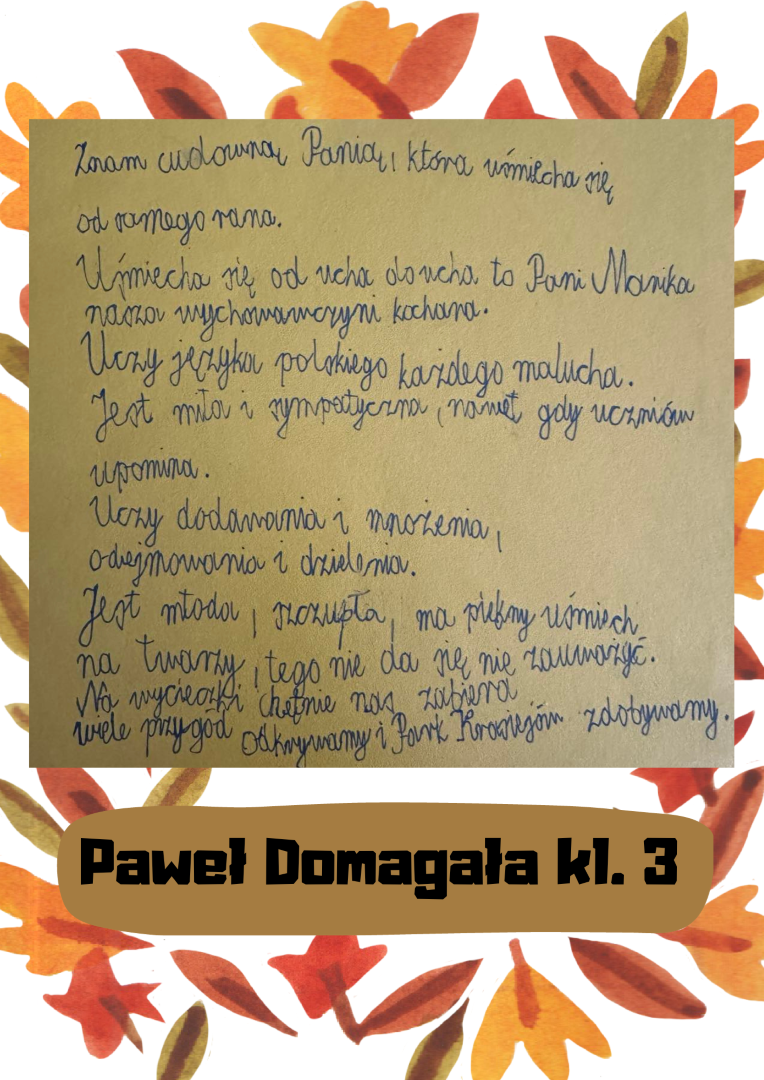 Znam cudowną Panią, która uśmiecha się
od samego rana.
Uśmiecha się od ucha do ucha to Pani Marika
nasza wychowawczyni kochana.
Uczy języka polskiego każdego malucha.
Jest miła i sympatyczna, nawet gdy uczniów
upomina.
Uczy dodawania i mnożenia,
odejmowania i dzielenia.
Jest młoda, szczupła, ma piękny uśmiech
na twarzy, tego nie da się nie zauważyć.
Na wycieczki chętnie nas zabiera
wiele przygód odkrywamy i Park Krasiejów zdobywamy.
Paweł Domagała kl. 3